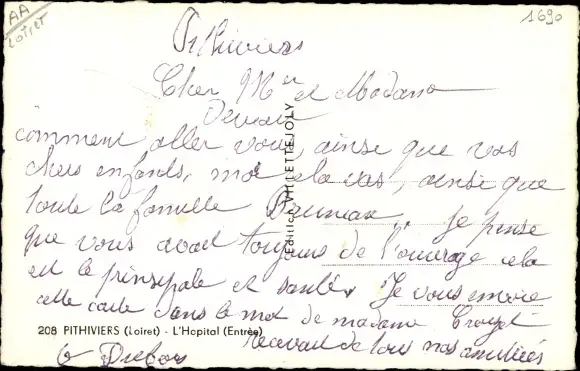 AA
Loiret
1690
Pithiviers
Cher Mer et Madame
comment aller vous, ainsi que vos
chers enfants, moi cela vas, ainsi que
toute la famille je pense
que vous avait toujours de l'ouvrage cela
est le principale et santé, Je vous envoie
cette carte dans le mot de madame
208 PITHIVIERS (Loiret) - L'Hopital (Entrée)
recevait de tous nos amitiés
Edition VILLETTE JOLY